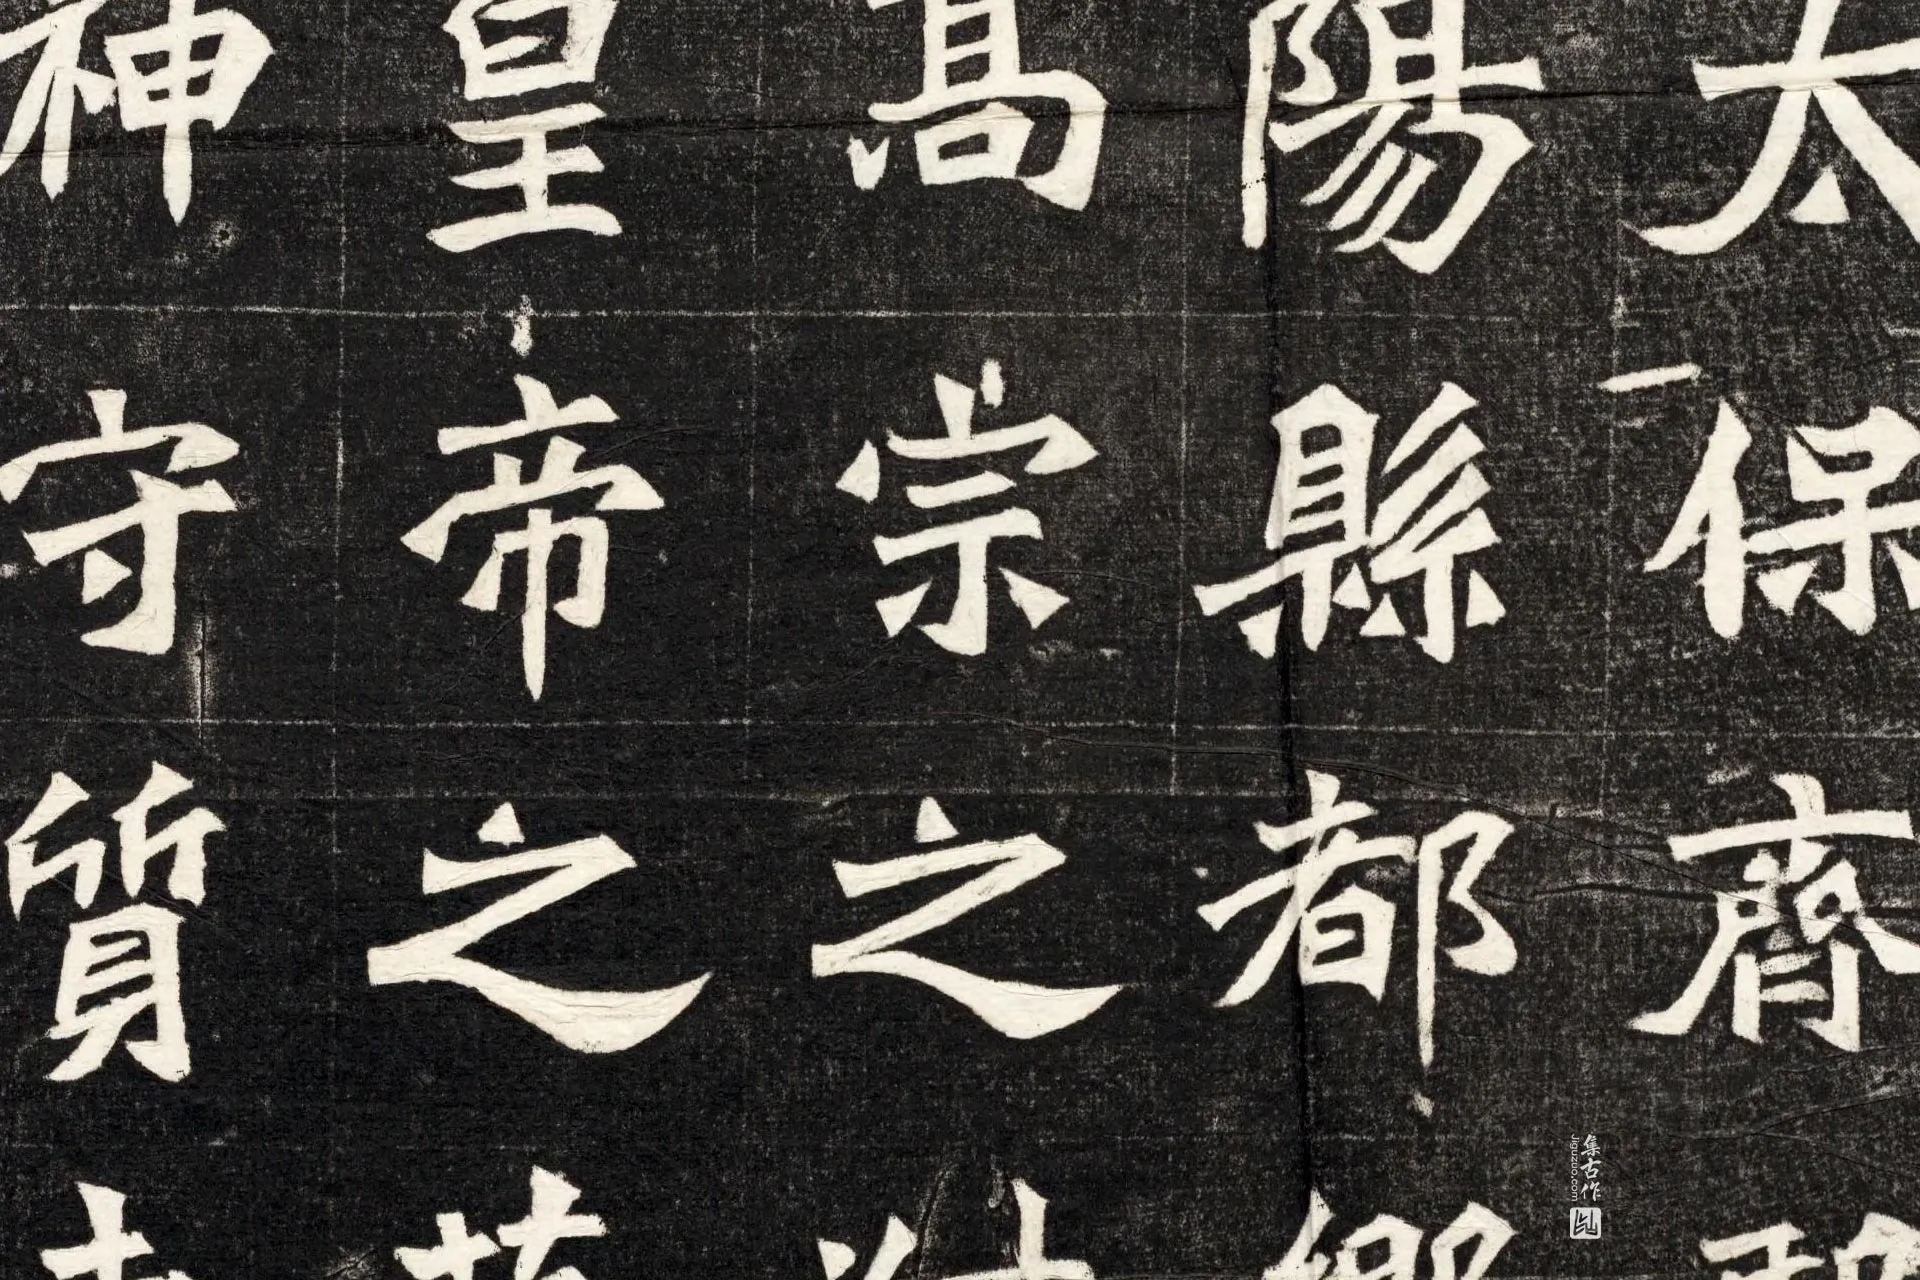 太保齊
陽縣都
髙宗之
皇帝之
神守質
集古作
Jiguzuo.com